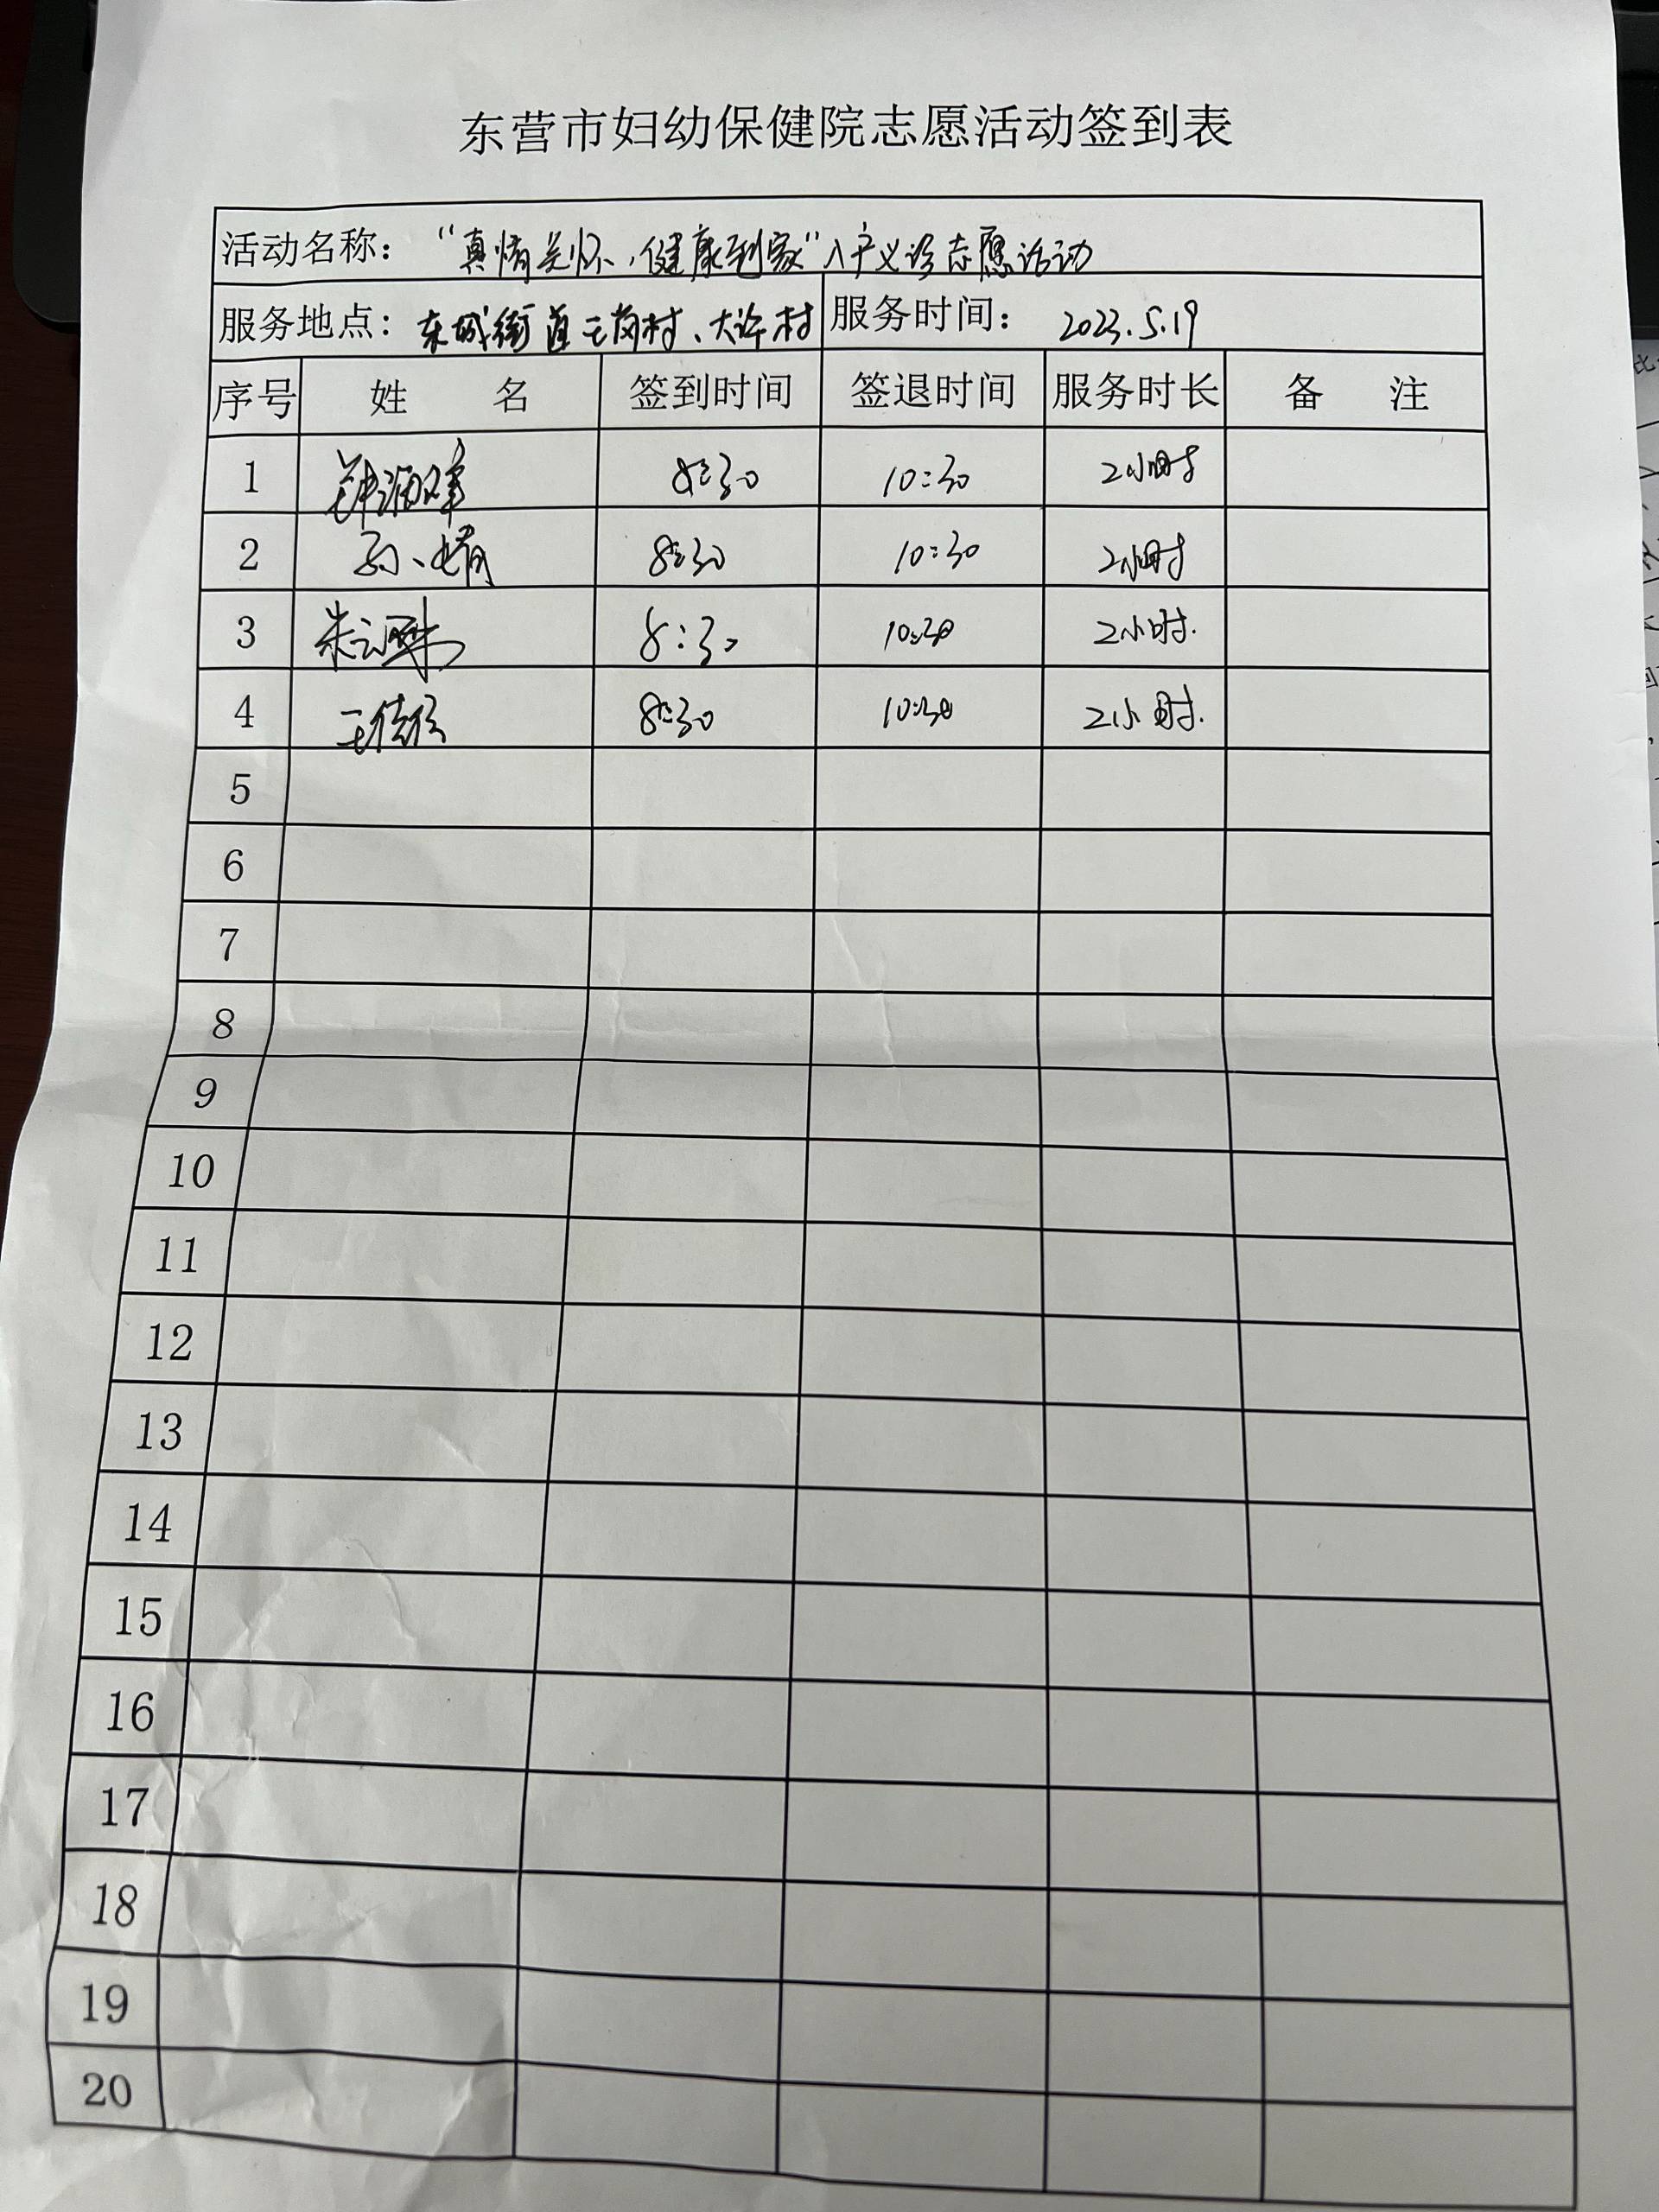 东营市妇幼保健院志愿活动签到表
活动名称：“真情关怀，健康到家”入户义诊志愿活动
服务地点：东城街道王岗村、大许村 服务时间：2023.5.19
序号 姓名 签到时间 签退时间 服务时长 备注
1 8:30 10:30 2小时
2 孙婧 8:30 10:30 2小时
3 朱 8:30 10:30 2小时.
4 王 8:30 10:30 2小时.
5
6
7
8
9
10
11
12
13
14
15
16
17
18
19
20